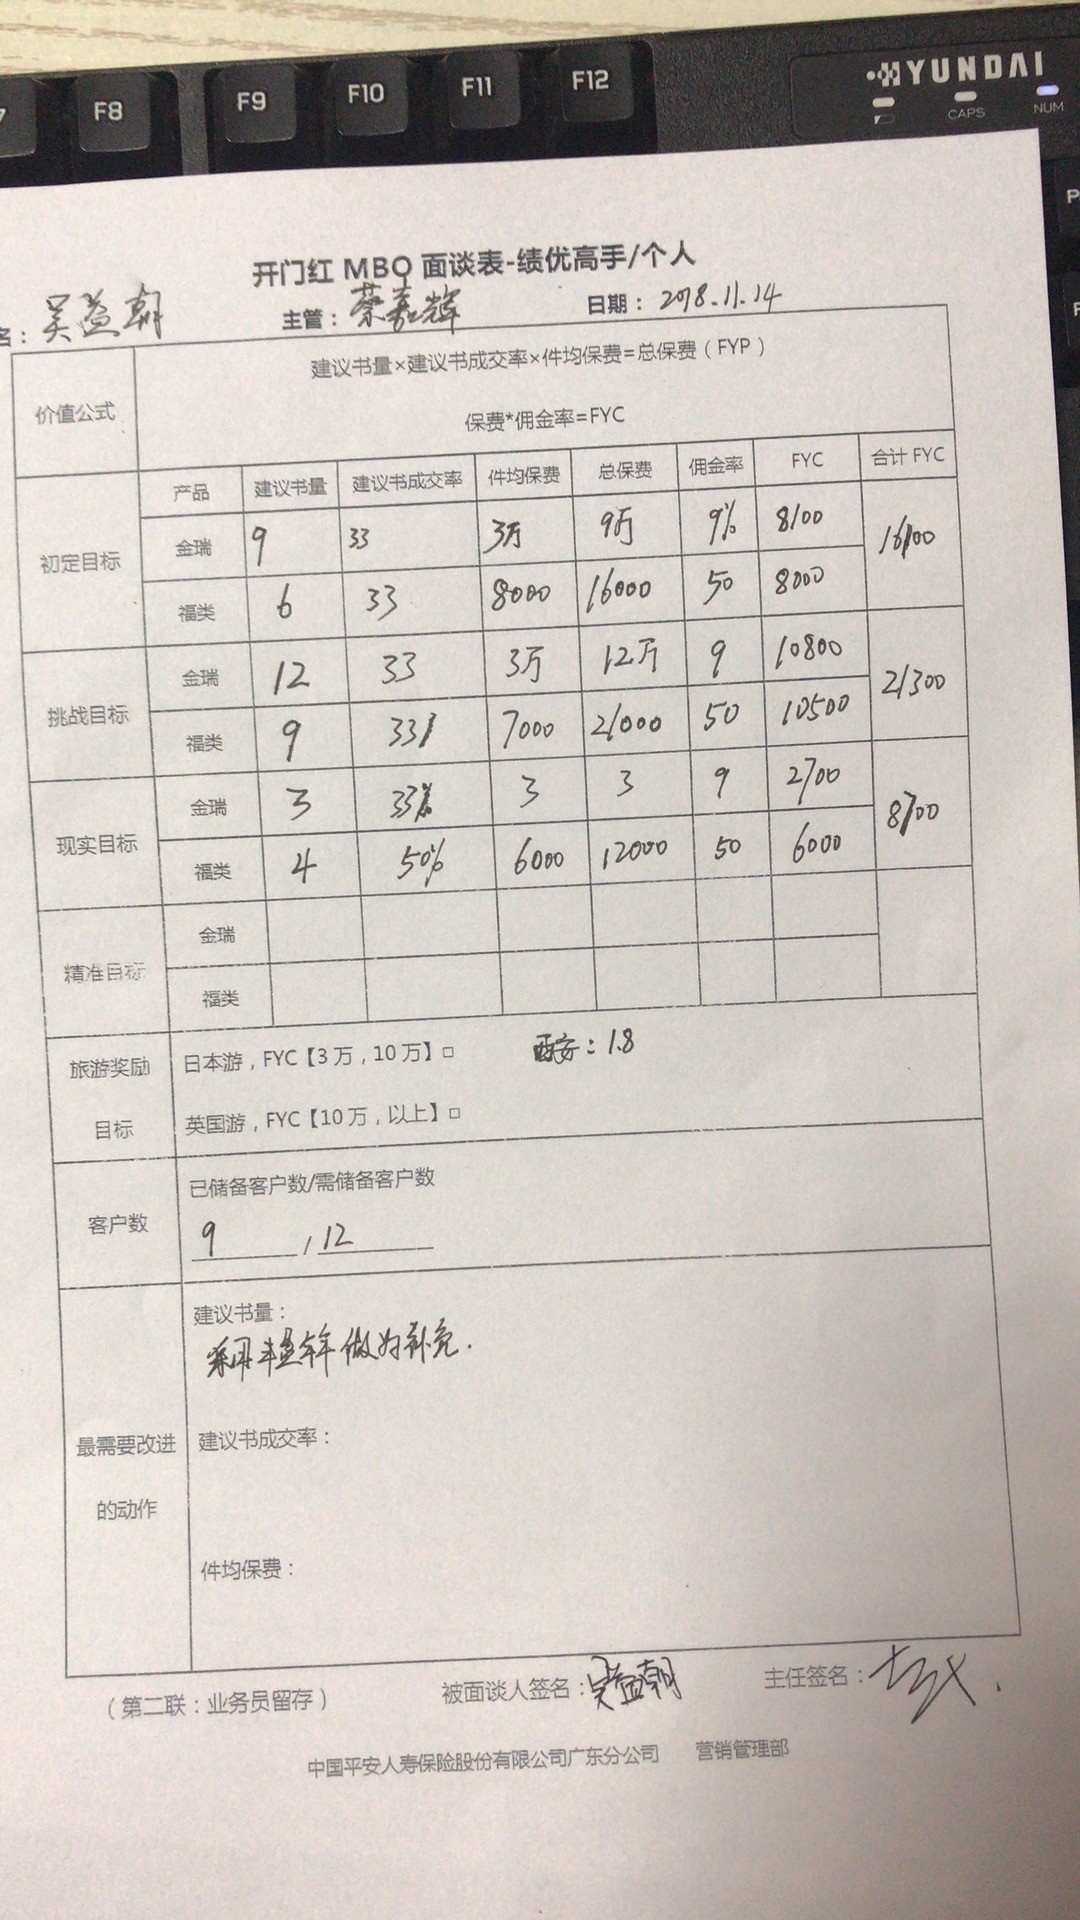 F8 F9 F10 F11 F12
HYUNDAI
CAPS NUM
开门红 MBO 面谈表-绩优高手/个人
名：吴益朝 主管：蔡嘉辉 日期：2018.11.14
价值公式
建议书量×建议书成交率×件均保费=总保费（FYP）
保费*佣金率=FYC
产品 建议书量 建议书成交率 件均保费 总保费 佣金率 FYC 合计 FYC
初定目标
金瑞 9 33 3万 9万 9% 8100 16100
福类 6 33 8000 16000 50 8000
挑战目标
金瑞 12 33 3万 12万 9 10800 21300
福类 9 33 7000 21000 50 10500
现实目标
金瑞 3 33% 3 3 9 2700 8700
福类 4 50% 6000 12000 50 6000
精准目标
金瑞
福类
旅游奖励
目标
日本游，FYC【3万，10万】□ 西安：1.8
英国游，FYC【10万，以上】□
客户数
已储备客户数/需储备客户数
9 / 12
最需要改进
的动作
建议书量：
采用 做为补充.
建议书成交率：
件均保费：
（第二联：业务员留存） 被面谈人签名：吴益朝 主任签名：
中国平安人寿保险股份有限公司广东分公司 营销管理部